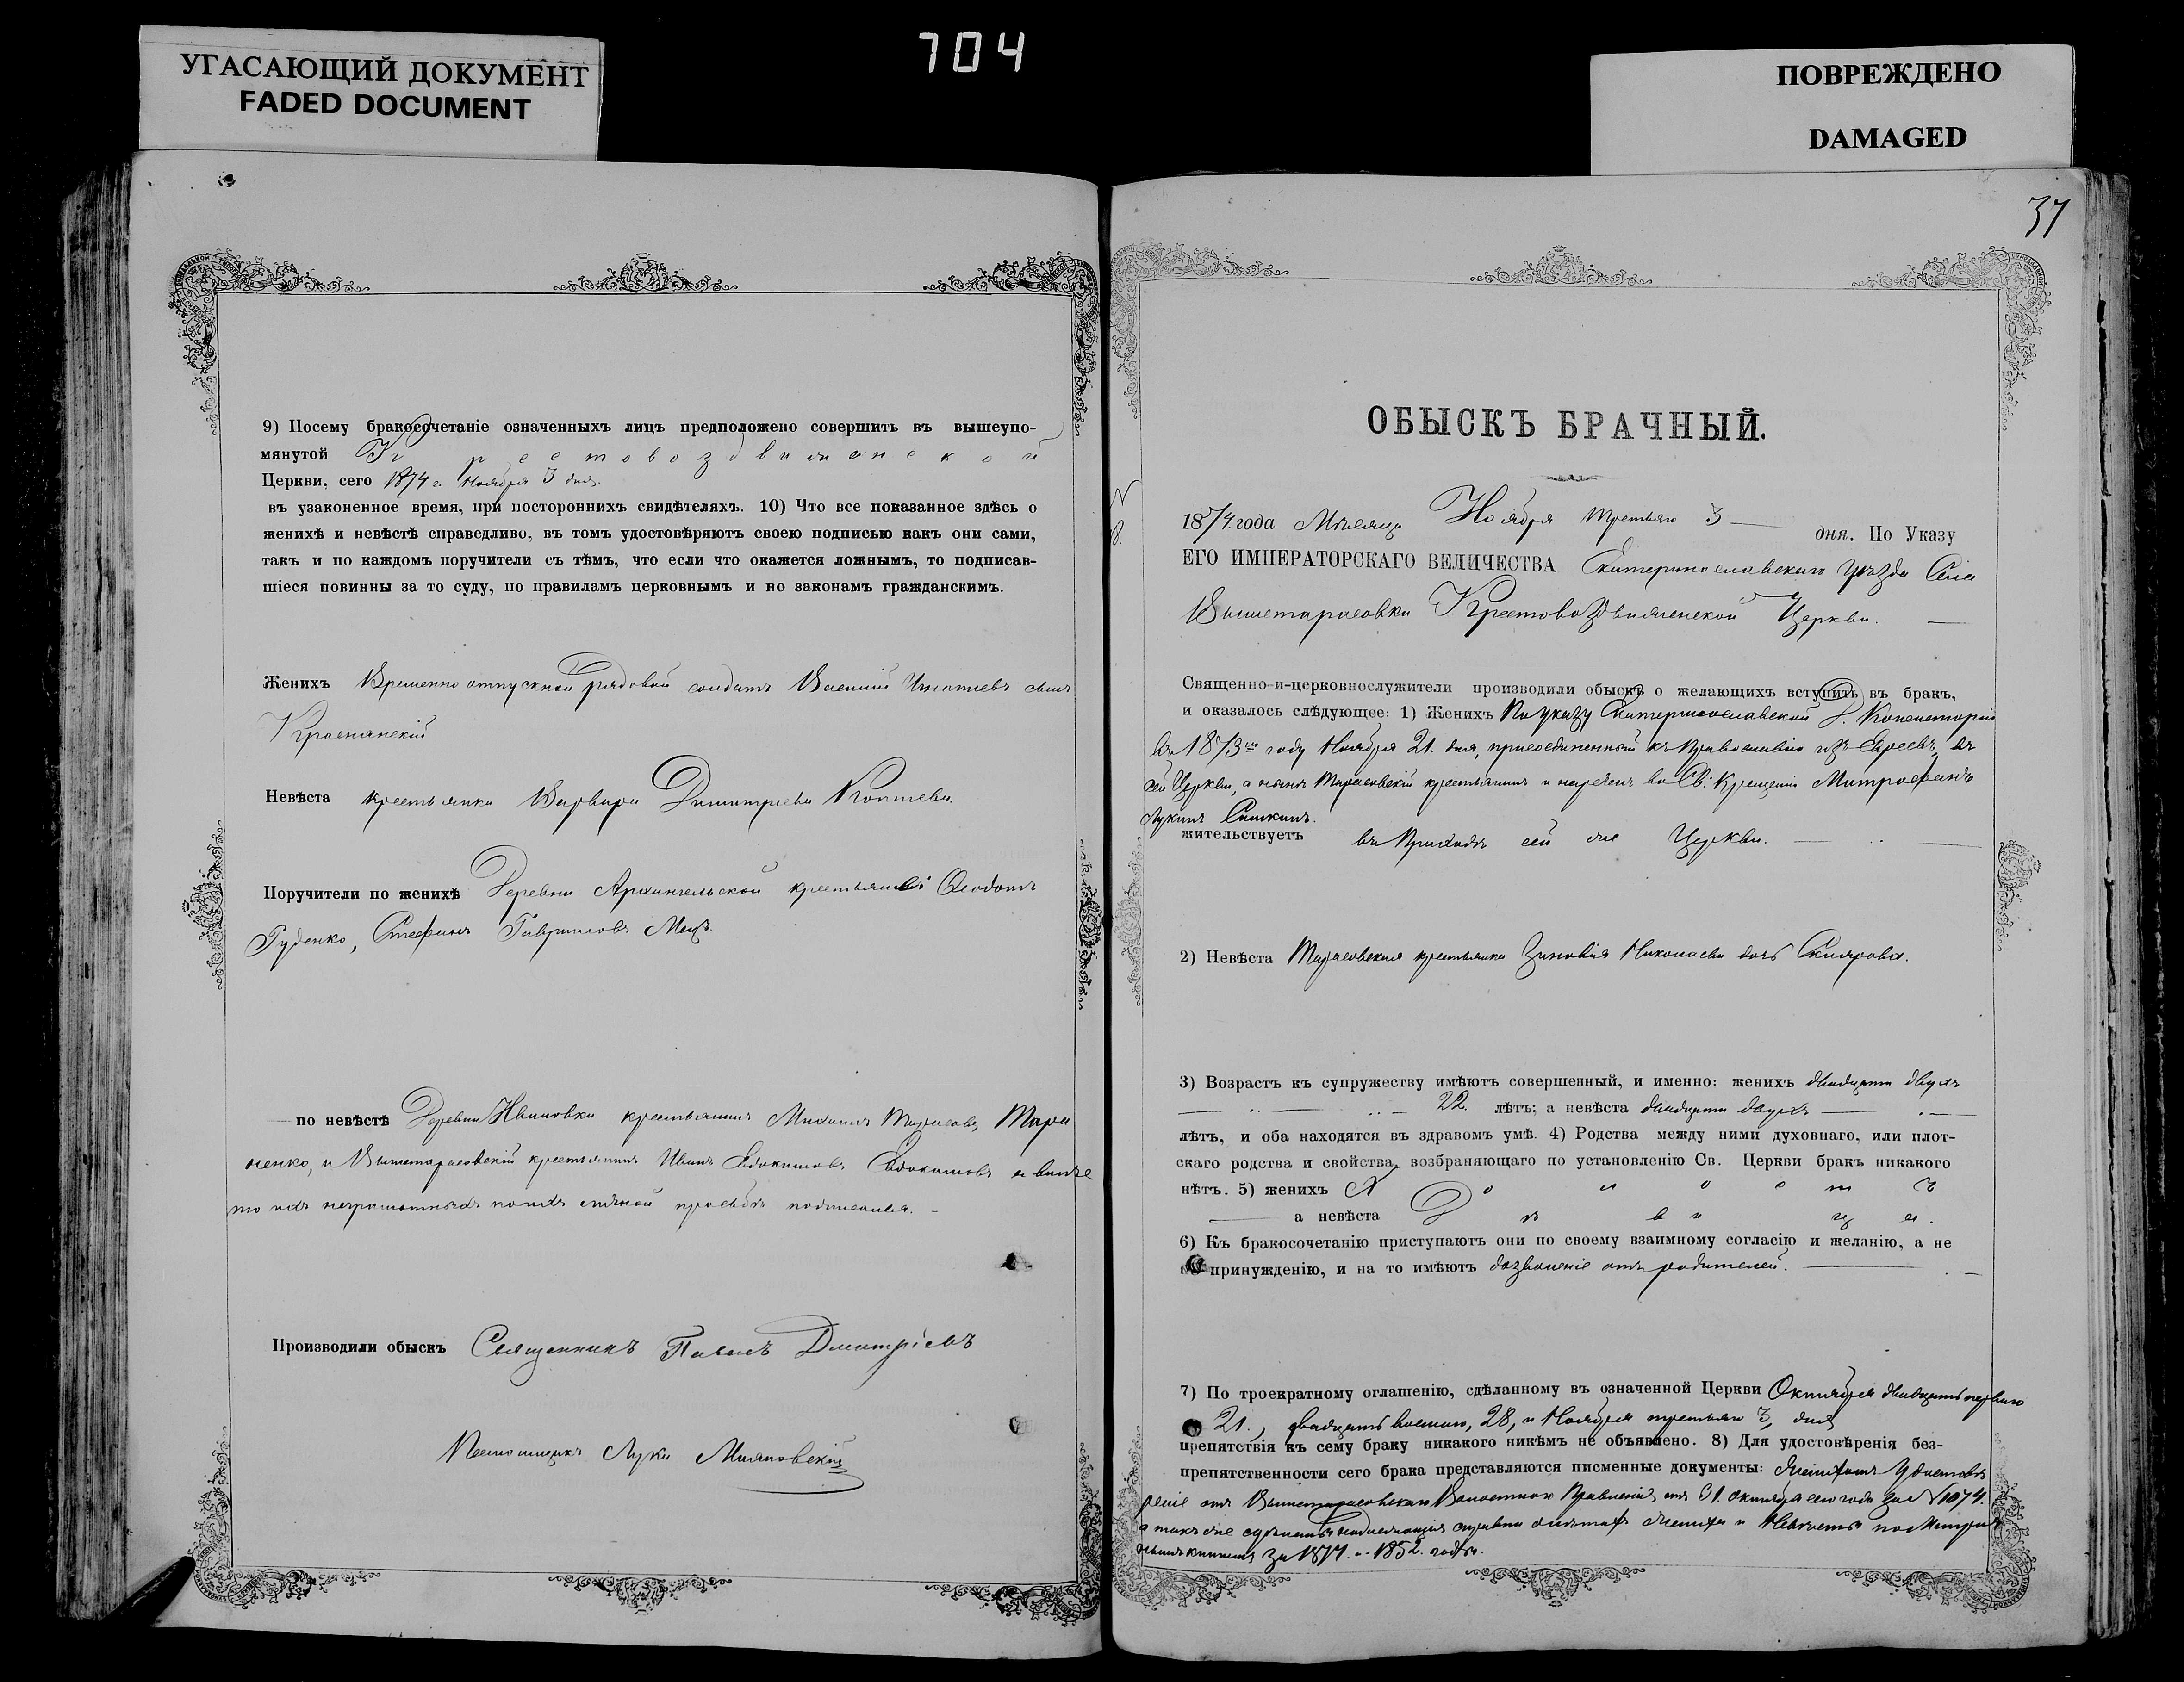 УГАСАЮЩИЙ ДОКУМЕНТ
FADED DOCUMENT
704
ПОВРЕЖДЕНО
DAMAGED
9) Посему бракосочетаніе означенныхъ лицъ предположено совершить въ вышеупо-
мянутой Крестовоздвиженской
Церкви, сего 1874 г. Ноября 3 дня.
въ узаконенное время, при постороннихъ свидѣтеляхъ. 10) Что все показанное здѣсь о
женихѣ и невѣстѣ справедливо, въ томъ удостовѣряютъ своею подписью какъ они сами,
такъ и по каждомъ поручители съ тѣмъ, что если что окажется ложнымъ, то подписав-
шіеся повинны за то суду, по правиламъ церковнымъ и по законамъ гражданскимъ.
Женихъ Временно отпускной рядовой солдатъ Василій сынъ
Невѣста крестьянка Варвара Димитріева Коптева.
Поручители по женихѣ Деревни Архангельской крестьяне Ѳеодотъ
Руденко, Стефанъ Гавриловъ
по невѣстѣ Деревни Ивановки крестьянинъ Михаилъ Тарасовъ Мара
ненко, и Вышетарасовскій крестьянинъ Иванъ Евдокимовъ Евдокимовъ а вмѣс
то ихъ неграмотныхъ по ихъ личной просьбѣ
Производили обыскъ Священникъ Павелъ Дмитріевъ
Псаломщикъ Лука
37
ОБЫСКЪ БРАЧНЫЙ.
1874 года Мѣсяца Ноября третьяго 3 дня. По Указу
ЕГО ИМПЕРАТОРСКАГО ВЕЛИЧЕСТВА Екатеринославскаго Уѣзда Села
Вышетарасовки Крестовоздвиженской Церкви.
Священно-и-церковнослужители производили обыскъ о желающихъ вступить въ бракъ,
и оказалось слѣдующее: 1) Женихъ По указу Екатеринославской Д. Консисторіи
въ 1873мъ году Ноября 21. дня, присоединенный къ Православію изъ Евреевъ, въ
сей Церкви, а нынѣ Тарасовскій крестьянинъ и нареченъ во Св: Крещеніи Митрофанъ
Лукинъ
жительствуетъ въ Приходѣ сей же Церкви.
2) Невѣста Тарасовская крестьянка Зиновія Николаева дочь Склярова.
3) Возрастъ къ супружеству имѣютъ совершенный, и именно: женихъ двадцати двухъ
22. лѣтъ; а невѣста двадцати двухъ
лѣтъ, и оба находятся въ здравомъ умѣ. 4) Родства между ними духовнаго, или плот-
скаго родства и свойства, возбраняющаго по установленію Св. Церкви бракъ никакого
нѣтъ. 5) женихъ Холостъ
а невѣста Дѣвица.
6) Къ бракосочетанію приступаютъ они по своему взаимному согласію и желанію, а не
по принужденію, и на то имѣютъ дозволеніе отъ родителей.
7) По троекратному оглашенію, сдѣланному въ означенной Церкви Октября двадцать перваго
21., двадцать восьмаго, 28, и Ноября третьяго 3, дня
препятствія къ сему браку никакого никѣмъ не объявлено. 8) Для удостовѣренія без-
препятственности сего брака представляются писменные документы: Женихомъ Удостовѣ
реніе отъ Вышетарасовскаго Волостнаго Правленія отъ 31. Октября сего года за № 1074.
а такъ же справка о лѣтахъ жениха и Невѣсты по Метри